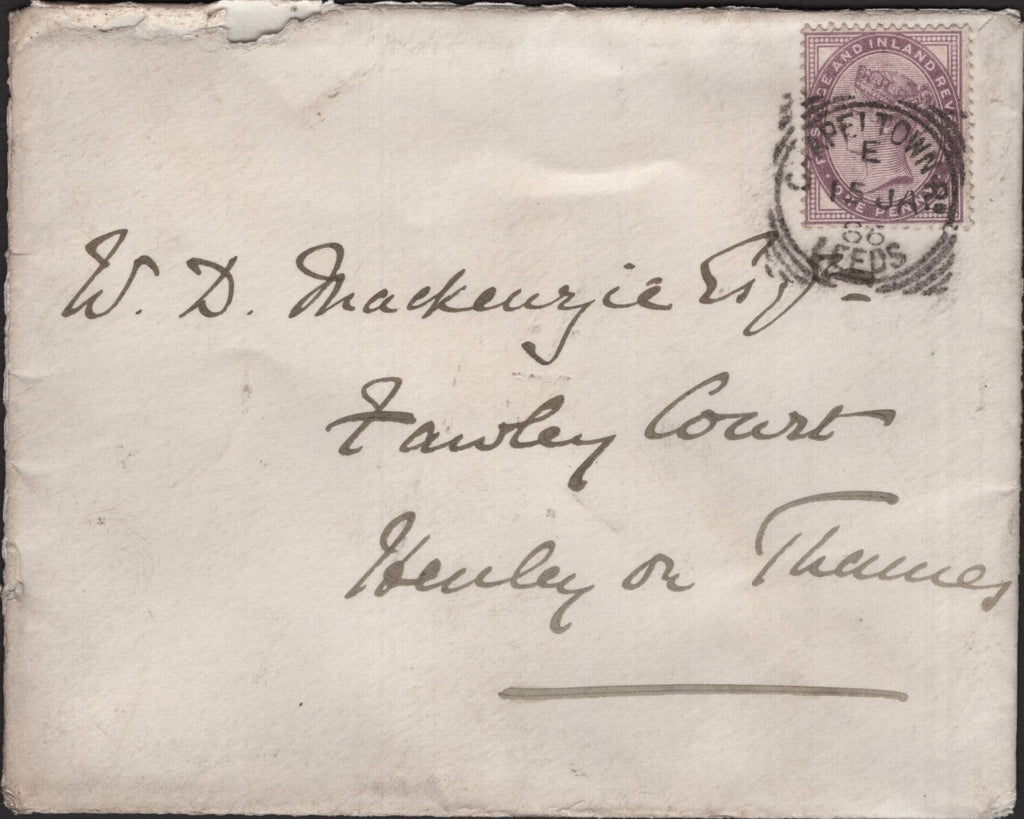 AND INLAND REV
CHAPELTOWN Rd
E
15 JA
86
LEEDS
ONE PENNY
W. D. Mackenzie Esqr
Fawley Court
Henley on Thames